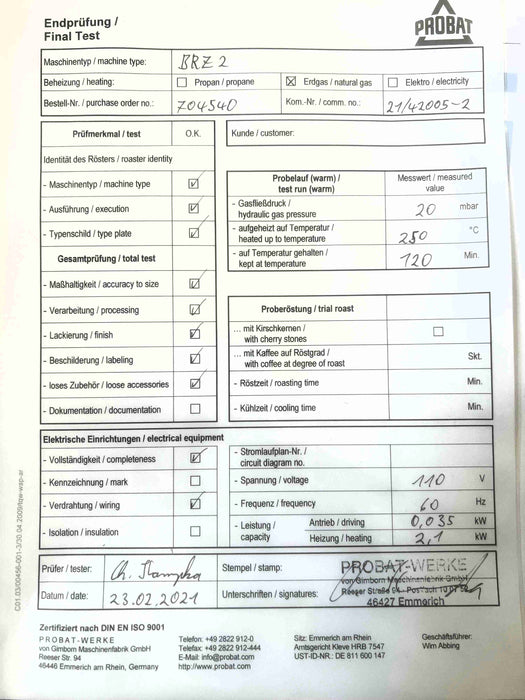 Endprüfung /
Final Test
PROBAT
Maschinentyp / machine type: BRZ 2
Beheizung / heating: Propan / propane Erdgas / natural gas Elektro / electricity
Bestell-Nr. / purchase order no.: 704540 Kom.-Nr. / comm. no.: 21/42005-2
Prüfmerkmal / test O.K.
Kunde / customer:
Identität des Rösters / roaster identity
- Maschinentyp / machine type
- Ausführung / execution
- Typenschild / type plate
Gesamtprüfung / total test
- Maßhaltigkeit / accuracy to size
- Verarbeitung / processing
- Lackierung / finish
- Beschilderung / labeling
- loses Zubehör / loose accessories
- Dokumentation / documentation
Probelauf (warm) /
test run (warm)
Messwert / measured
value
- Gasfließdruck /
hydraulic gas pressure
20 mbar
- aufgeheizt auf Temperatur /
heated up to temperature
250 °C
- auf Temperatur gehalten /
kept at temperature
120 Min.
Proberöstung / trial roast
... mit Kirschkernen /
with cherry stones
... mit Kaffee auf Röstgrad /
with coffee at degree of roast
Skt.
- Röstzeit / roasting time Min.
- Kühlzeit / cooling time Min.
Elektrische Einrichtungen / electrical equipment
- Vollständigkeit / completeness
- Kennzeichnung / mark
- Verdrahtung / wiring
- Isolation / insulation
- Stromlaufplan-Nr. /
circuit diagram no.
- Spannung / voltage 110 V
- Frequenz / frequency 60 Hz
- Leistung /
capacity
Antrieb / driving 0,035 kW
Heizung / heating 2,1 kW
Prüfer / tester:
Datum / date: 23.02.2021
Stempel / stamp:
Unterschriften / signatures:
PROBAT-WERKE
von Gimborn Maschinenfabrik GmbH
Reeser Straße 94
46427 Emmerich
Zertifiziert nach DIN EN ISO 9001
PROBAT-WERKE
von Gimborn Maschinenfabrik GmbH
Reeser Str. 94
46446 Emmerich am Rhein, Germany
Telefon: +49 2822 912-0
Telefax: +49 2822 912-444
E-Mail: info@probat.com
http://www.probat.com
Sitz: Emmerich am Rhein
Amtsgericht Kleve HRB 7547
UST-ID-NR.: DE 811 600 147
Geschäftsführer:
Wim Abbing